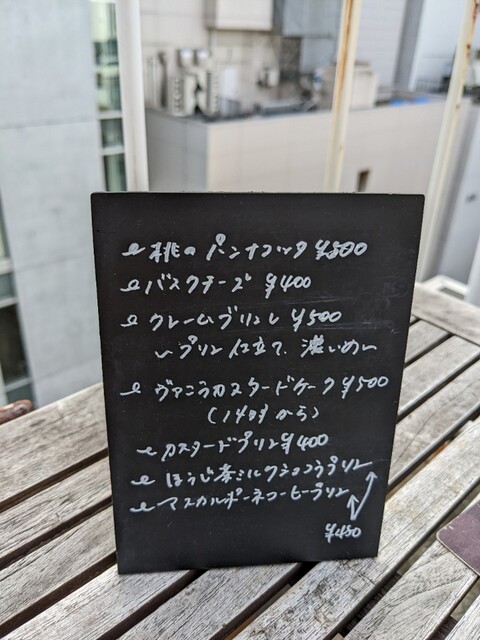 桃のパンナコッタ ¥500
バスクチーズ ¥400
クレームブリュレ ¥500
〜プリン仕立て、濃いめ〜
ヴァニラカスタードケーク ¥500
(14時から)
カスタードプリン ¥400
ほうじ茶ミルクショコラプリン
マスカルポーネコーヒープリン
¥450